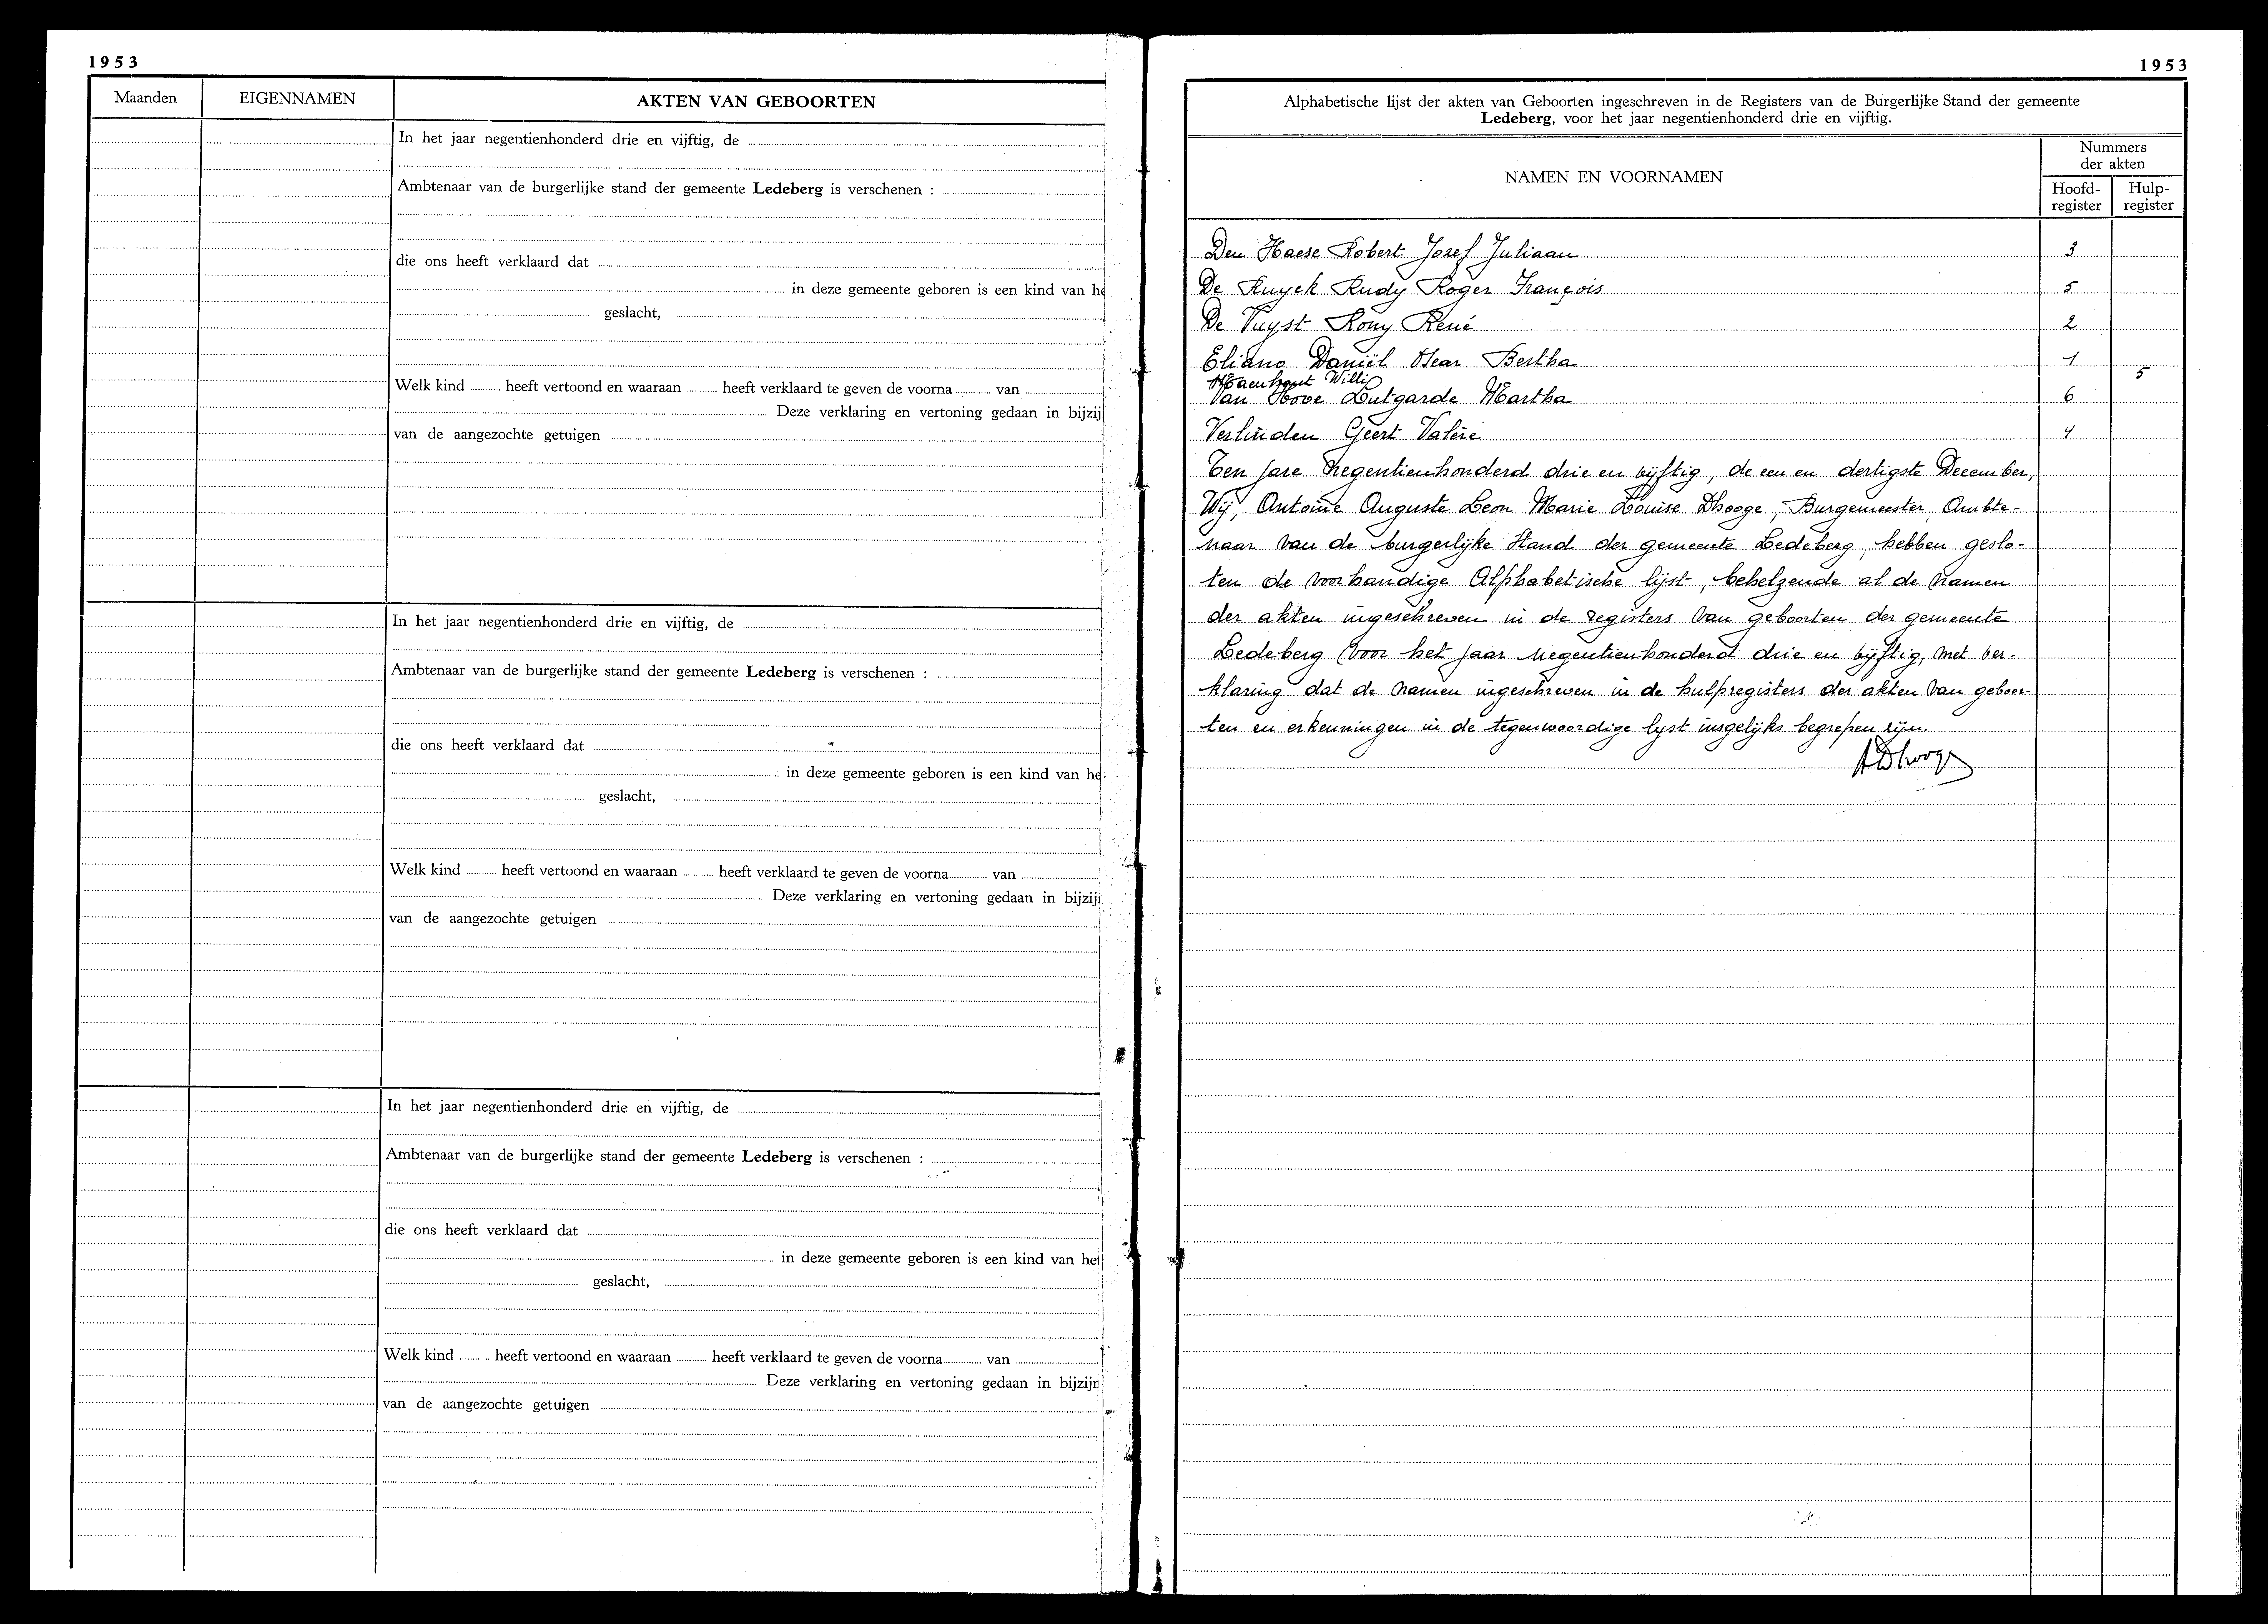 1953
Maanden
EIGENNAMEN
AKTEN VAN GEBOORTEN
In het jaar negentienhonderd drie en vijftig, de
Ambtenaar van de burgerlijke stand der gemeente Ledeberg is verschenen :
die ons heeft verklaard dat
in deze gemeente geboren is een kind van he
geslacht,
Welk kind heeft vertoond en waaraan heeft verklaard te geven de voorna van
Deze verklaring en vertoning gedaan in bijzij
van de aangezochte getuigen
In het jaar negentienhonderd drie en vijftig, de
Ambtenaar van de burgerlijke stand der gemeente Ledeberg is verschenen :
die ons heeft verklaard dat
in deze gemeente geboren is een kind van he
geslacht,
Welk kind heeft vertoond en waaraan heeft verklaard te geven de voorna van
Deze verklaring en vertoning gedaan in bijzij
van de aangezochte getuigen
In het jaar negentienhonderd drie en vijftig, de
Ambtenaar van de burgerlijke stand der gemeente Ledeberg is verschenen :
die ons heeft verklaard dat
in deze gemeente geboren is een kind van he
geslacht,
Welk kind heeft vertoond en waaraan heeft verklaard te geven de voorna van
Deze verklaring en vertoning gedaan in bijzij
van de aangezochte getuigen
1953
Alphabetische lijst der akten van Geboorten ingeschreven in de Registers van de Burgerlijke Stand der gemeente
Ledeberg, voor het jaar negentienhonderd drie en vijftig.
NAMEN EN VOORNAMEN
Nummers
der akten
Hoofd-
register
Hulp-
register
Den Haese Robert Jozef Juliaan 3
De Ruyck Rudy Roger François 5
De Vuyst Rony René 2
Eliano Daniël Oscar Bertha 1
Maenhout Willi 5
Van Hove Lutgarde Martha 6
Verlinden Geert Valère 4
Ten jare negentienhonderd drie en vijftig, de een en dertigste December,
Wij, Antoine Auguste Leon Marie Louise Dhooge, Burgemeester, Ambte-
naar van de burgerlijke Stand der gemeente Ledeberg, hebben geslo-
ten de voorhandige Alphabetische lijst, behelzende al de namen
der akten ingeschreven in de registers van geboorten der gemeente
Ledeberg voor het jaar negentienhonderd drie en vijftig, met ver-
klaring dat de namen ingeschreven in de hulpregisters der akten van geboor-
ten en erkenningen in de tegenwoordige lyst insgelijks begrepen zijn.
ADhooge